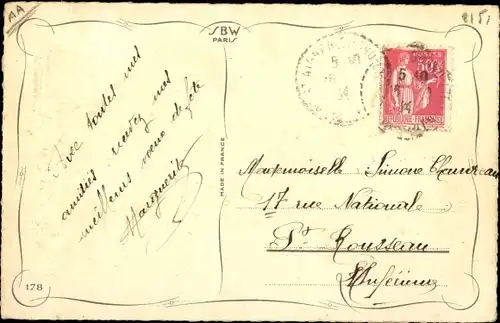 AA
SBW
PARIS
2151
POSTES
50c
5
10
34
REPUBLIQUE FRANCAISE
Avec toutes mes
amitiés recevez mes
meilleurs vœux de fête
Marguerite
MADE IN FRANCE
Mademoiselle Simone
17 rue Nationale
Pt Rousseau
Inférieure
178